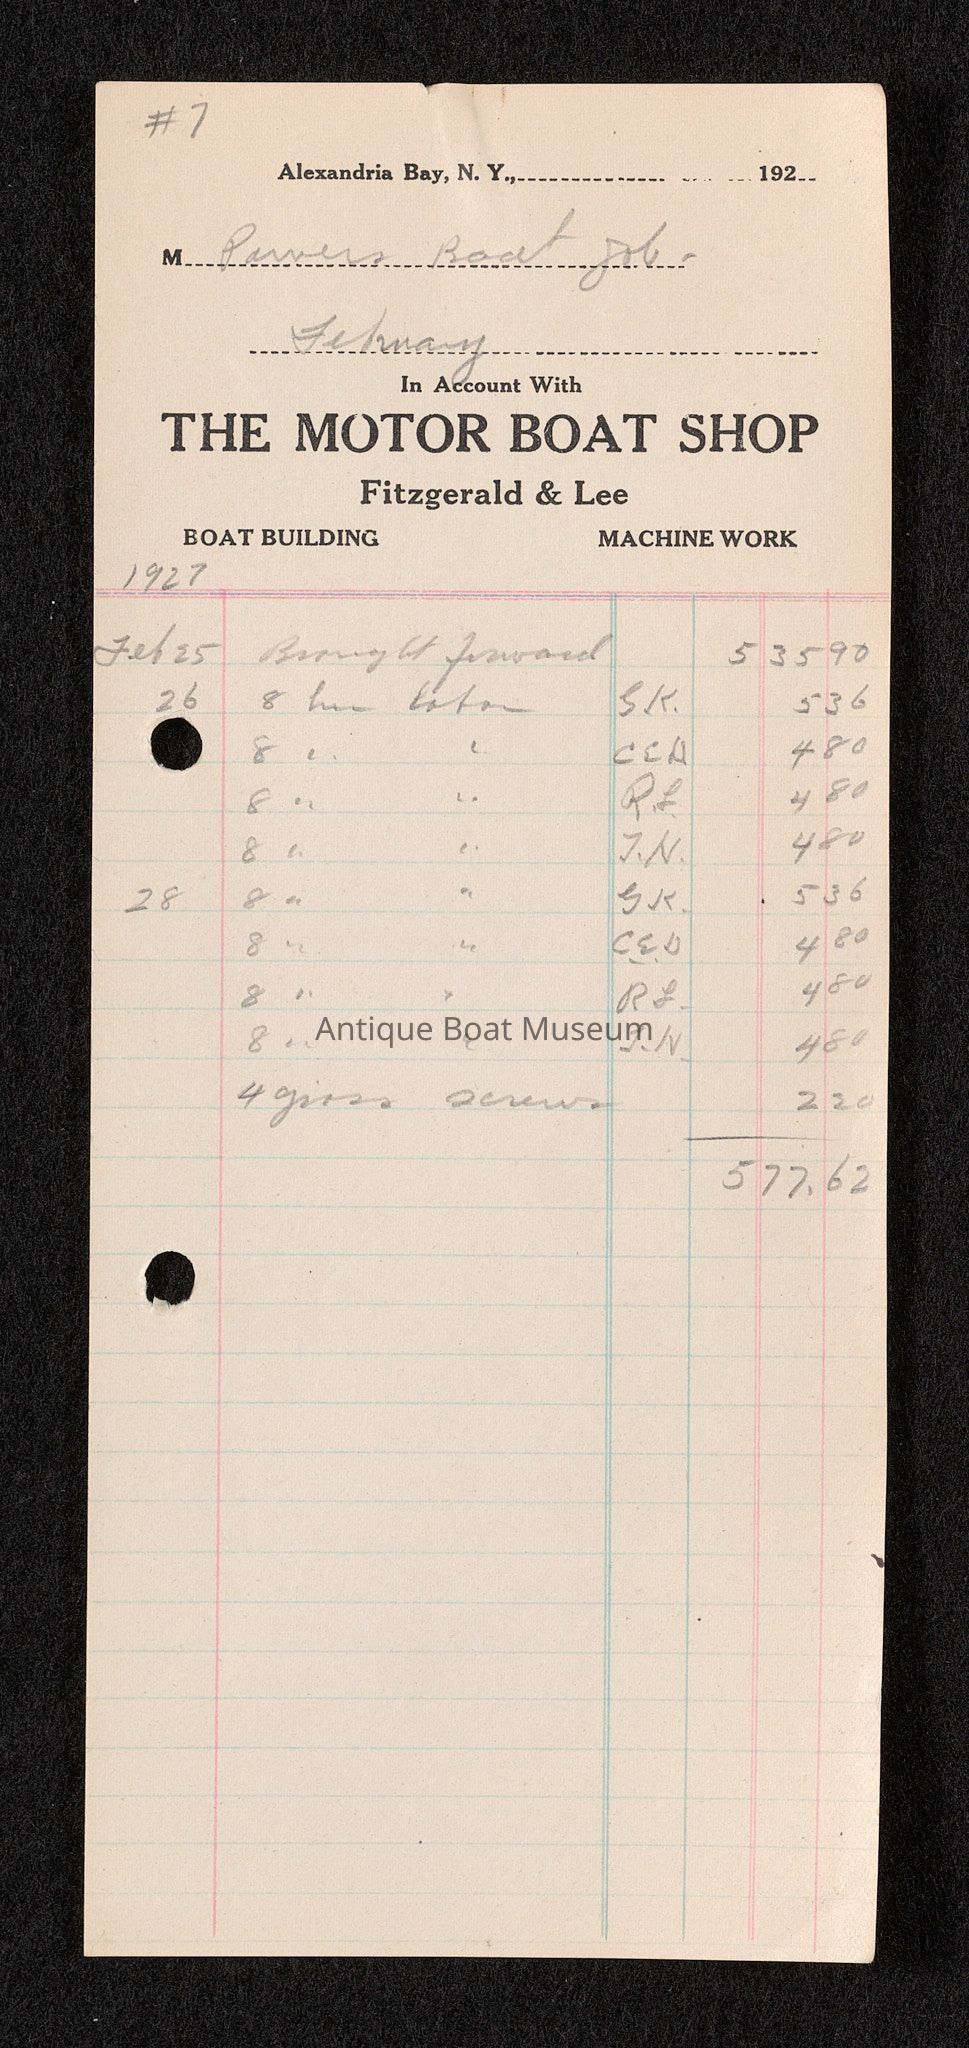 #7
Alexandria Bay, N. Y., 192
M Powers Boat Job.
February
In Account With
THE MOTOR BOAT SHOP
Fitzgerald & Lee
BOAT BUILDING MACHINE WORK
1927
Feb 25 Brought forward 535 90
26 8 hrs labor G.K. 5 36
8 " " C E D 4 80
8 " " R.L. 4 80
8 " " J.N. 4 80
28 8 " " G.K. 5 36
8 " " C.E.D 4 80
8 " " R L. 4 80
8 " " J.N. 4 80
4 gross screws 2 20
577.62
Antique Boat Museum